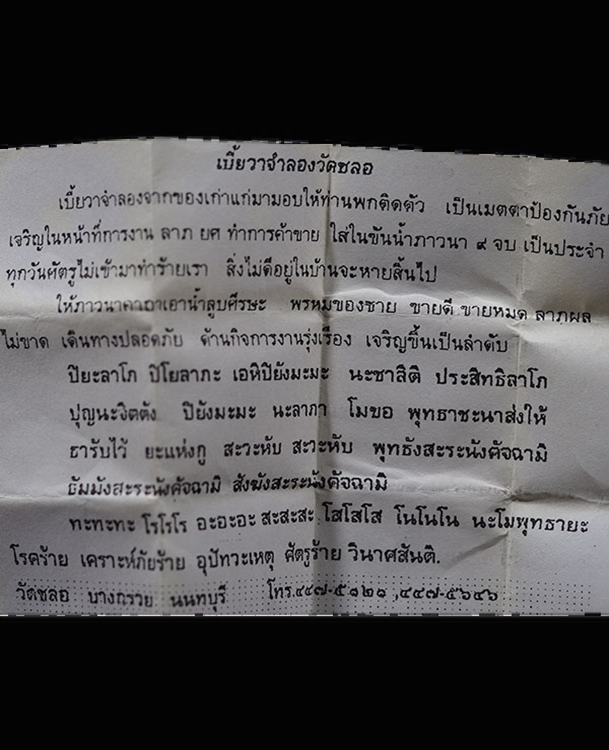 เบี้ยวาจำลองวัดชลอ
เบี้ยวาจำลองจากของเก่าแก่มามอบให้ท่านพกติดตัว เป็นเมตตาป้องกันภัย
เจริญในหน้าที่การงาน ลาภ ยศ ทำการค้าขาย ใส่ในขันน้ำภาวนา ๙ จบ เป็นประจำ
ทุกวันศัตรูไม่เข้ามาทำร้ายเรา สิ่งไม่ดีอยู่ในบ้านจะหายสิ้นไป
ให้ภาวนาคาถาเอาน้ำลูบศีรษะ พรหมของขาย ขายดี ขายหมด ลาภผล
ไม่ขาด เดินทางปลอดภัย ด้านกิจการงานรุ่งเรือง เจริญขึ้นเป็นลำดับ
ปิยะลาโภ ปิโยลาภะ เอหิปิยังมะมะ นะชาลิติ ประสิทธิลาโภ
ปุญนะจิตตัง ปิยังมะมะ นะลาภา โมขอ พุทธาชะนาส่งให้
ธารับไว้ ยะแห่งกู สะวะหับ สะวะหับ พุทธังสะระนังคัจฉามิ
ธัมมังสะระนังคัจฉามิ สังฆังสะระนังคัจฉามิ
ทะทะทะ โรโรโร อะอะอะ สะสะสะ โสโสโส โนโนโน นะโมพุทธายะ
โรคร้าย เคราะห์ภัยร้าย อุปัทวะเหตุ ศัตรูร้าย วินาศสันติ.
วัดชลอ บางกรวย นนทบุรี โทร.๔๔๗-๕๑๒๑ ,๔๔๗-๕๖๔๖